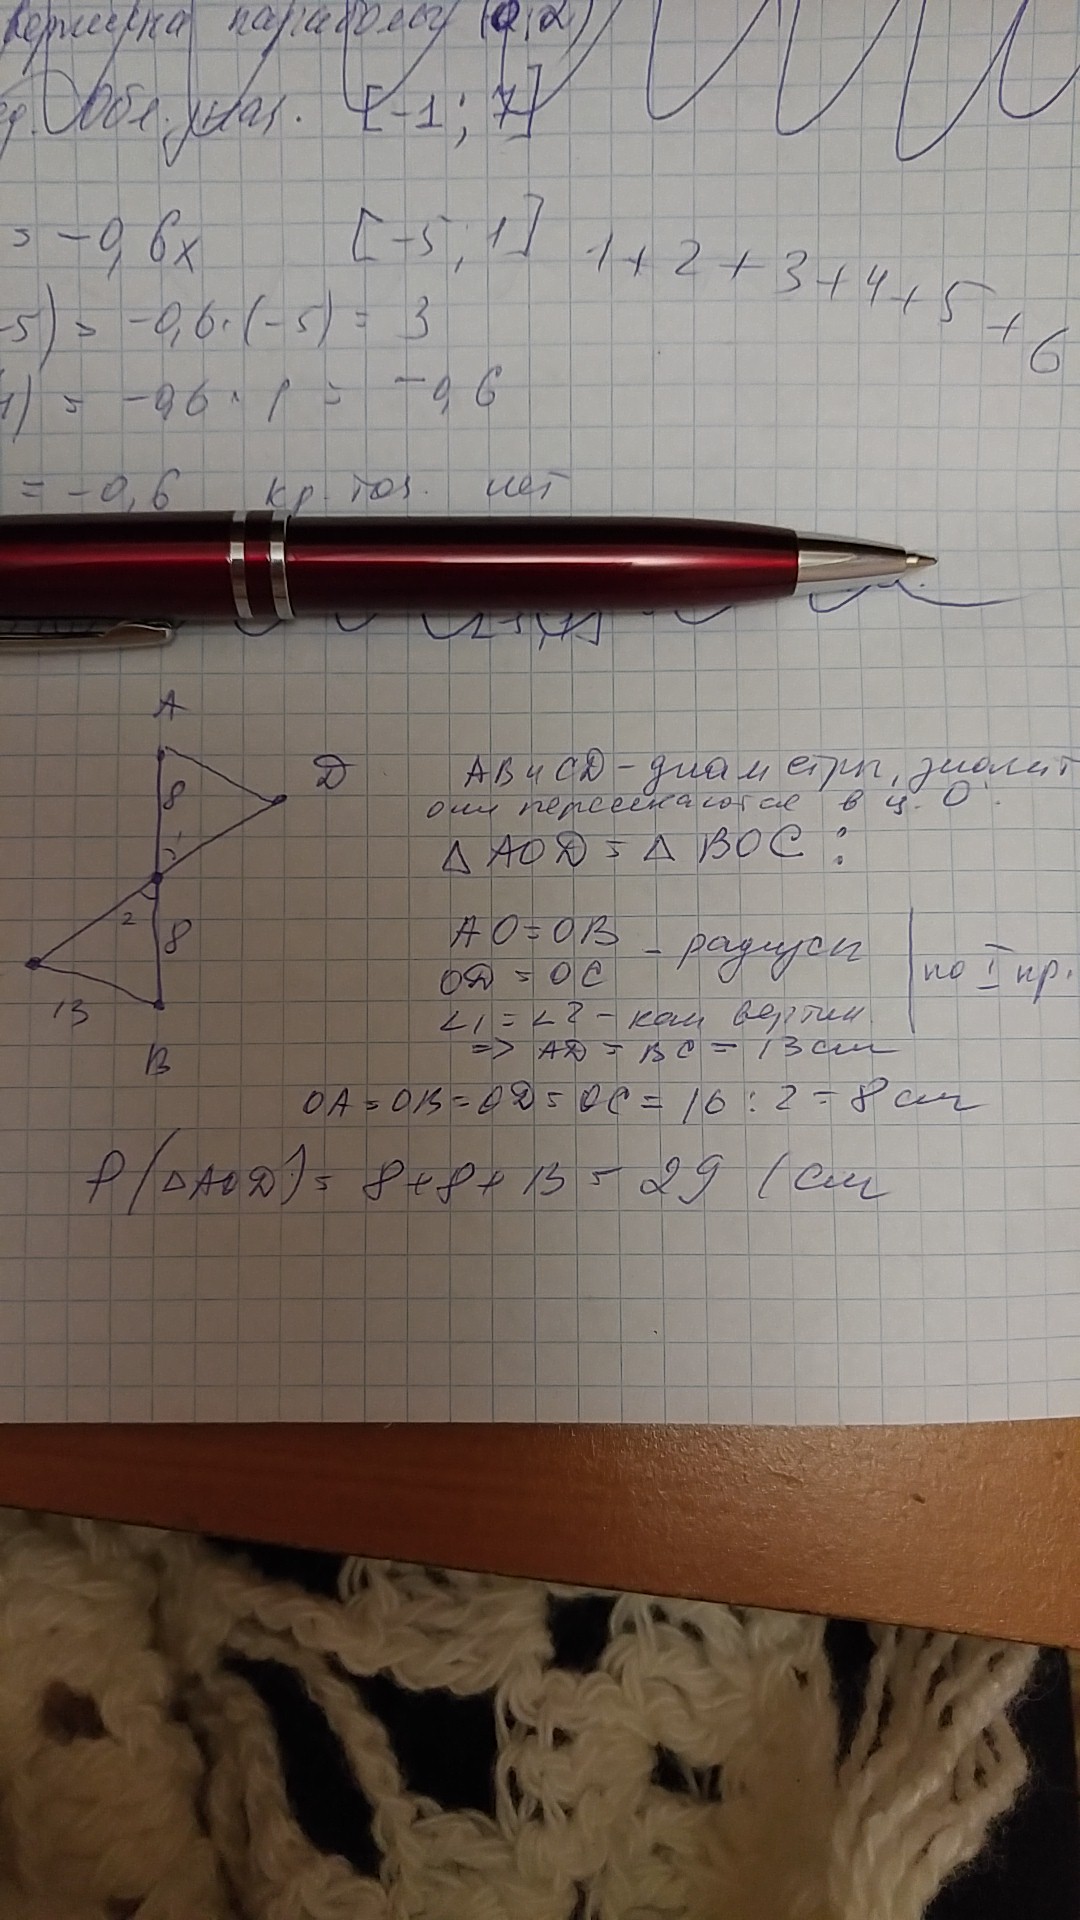 параболы (0,2)
[-1; 7]
= -0,6x [-5; 1]
1+2+3+4+5+6
-5) = -0,6·(-5) = 3
1) = -0,6·1 = -0,6
= -0,6 кр. точ. нет
A
D
8
1
2
8
13
B
AB и CD - диаметры, значит
они пересекаются в ц. O.
△ AOD = △ BOC:
AO = OB
- радиусы
OD = OC
по I пр.
∠1 = ∠2 - как вертик
=> AD = BC = 13 см
OA = OB = OD = OC = 16 : 2 = 8 см
P (△AOD) = 8+8+13 = 29 (см